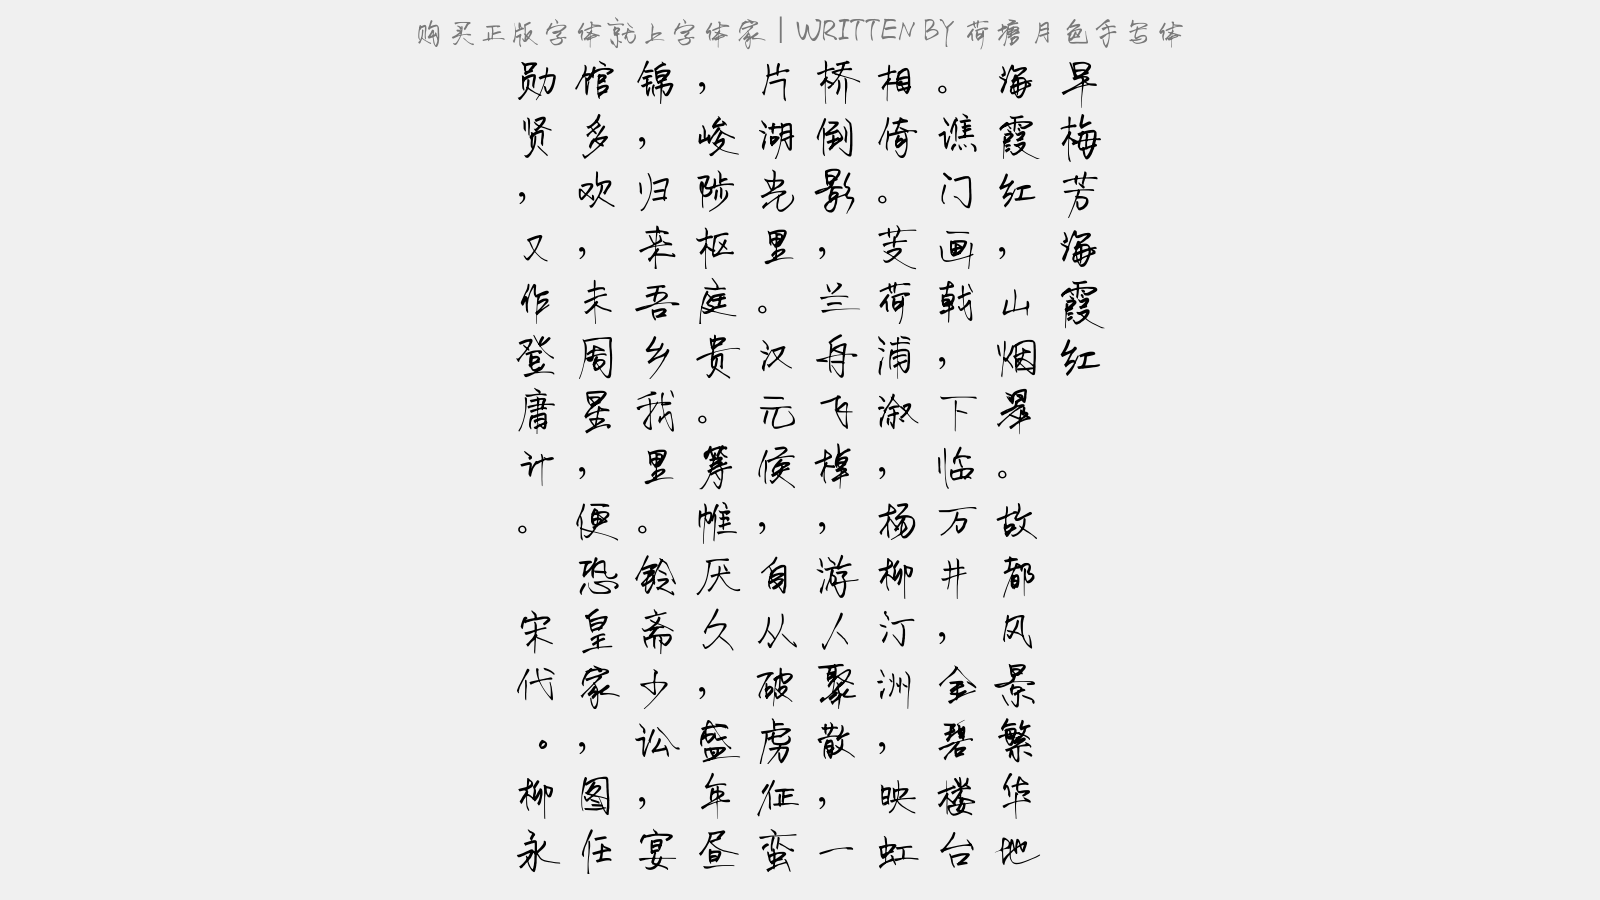 购买正版字体就上字体家 | WRITTEN BY 荷塘月色手写体
早梅芳海霞红
海霞红，山烟翠。故都风景繁华地
。谯门画戟，下临万井，金碧楼台
相倚。芰荷浦溆，杨柳汀洲，映虹
桥倒影，兰舟飞棹，游人聚散，一
片湖光里。汉元侯，自从破虏征蛮
，峻陟枢庭贵。筹帷厌久，盛年昼
锦，归来吾乡我里。铃斋少讼，宴
馆多欢，未周星，便恐皇家，图任
勋贤，又作登庸计。 宋代。柳永